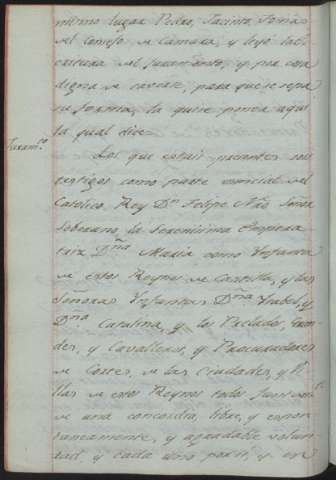 mismo lugar Pedro, Jacinto
del Consejo de Camara, y leyó la es
critura del Juramento, y por cosa
digna de saverse, para que se sepa
su forma, la quise poner aqui
la qual dice
Juram.to
Los que estais presentes sois
testigos como parte esencial del
Catolico Rey Dn Felipe Nro Señor
Soberano, la Serenisima Empera
triz Dña Maria como Ynfanta
de estos Reynos de Castilla, y las
Señoras Ynfantas Dña Ysabel, y
Dña Catalina, y los Prelados, Gran
des, y Cavalleros, y Procuradores
de Cortes, de las Ciudades, y Vi
llas de estos Reynos todos juntos
de una concordia, libre, y espon
taneamente, y agradable volun
tad y cada uno por si, y en